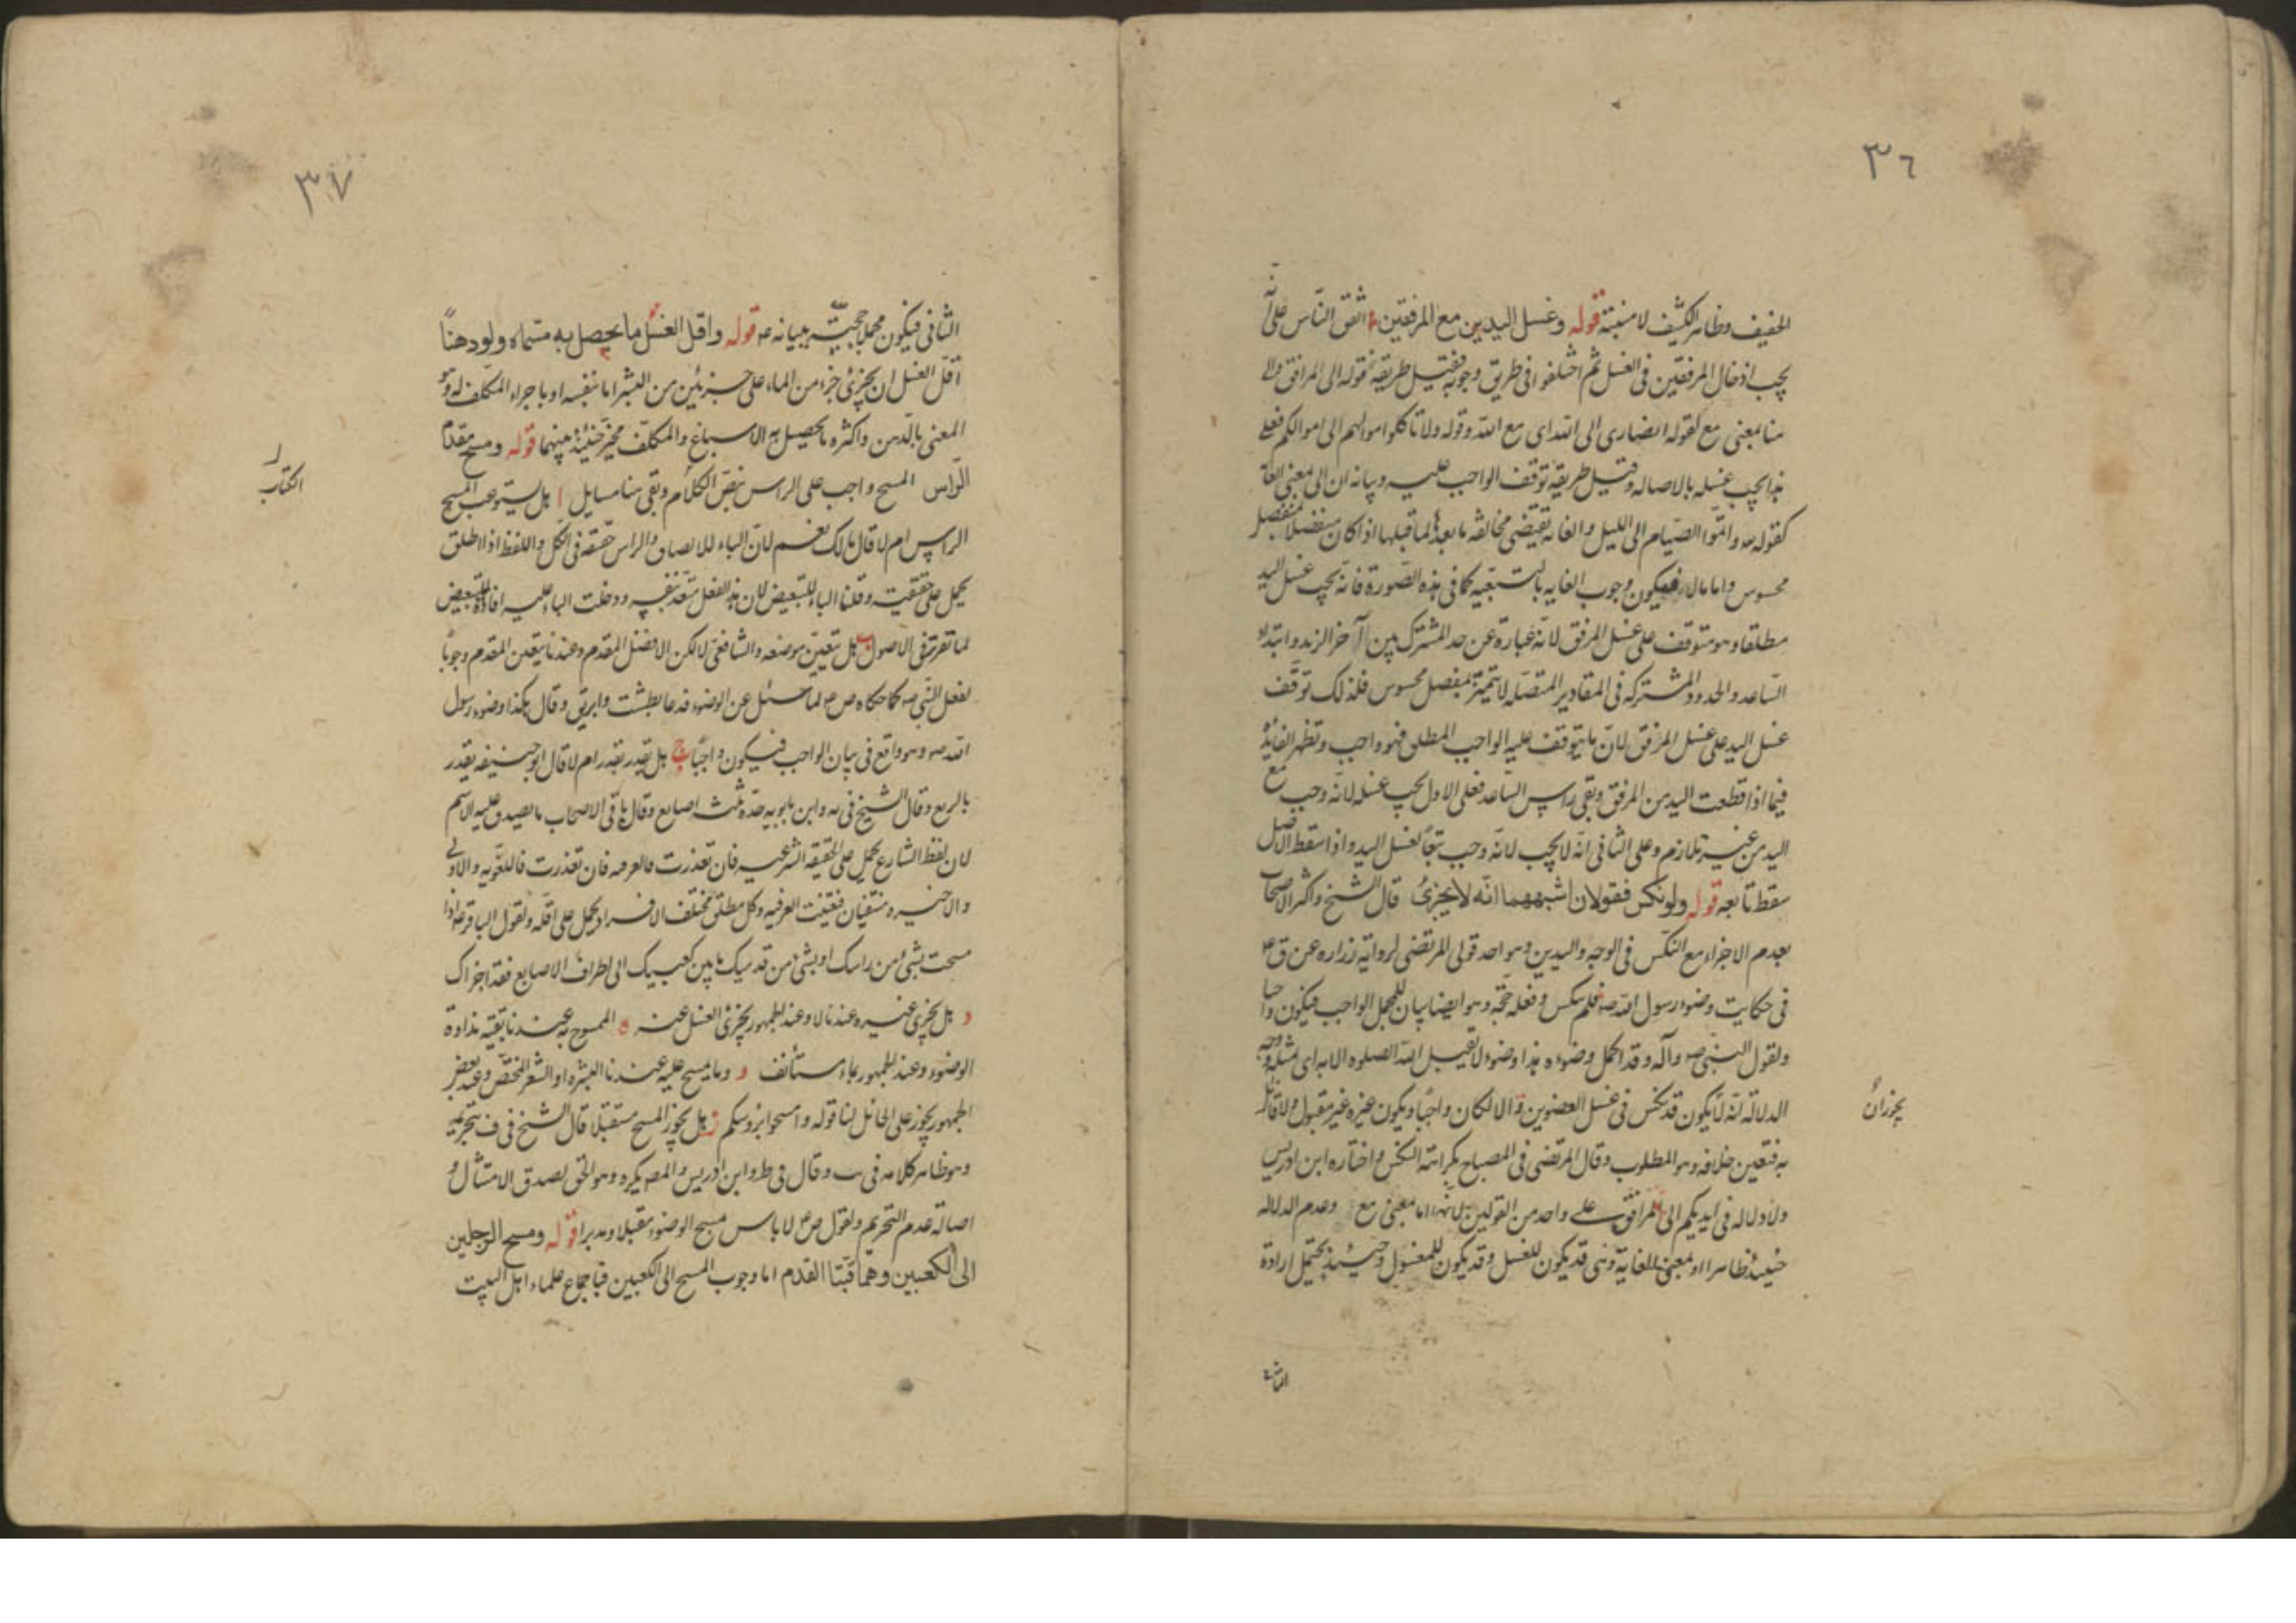 ٣٦
الخفيف وظاهر الكثيف لا منبته قوله وغسل اليدين مع المرفقين اتفق الناس على انّه
يجب ادخال المرفقين فى الغسل ثم اختلفوا فى طريق وجوبه فقيل طريقه قوله الى المرافق والى
هنا بمعنى مع كقوله انصارى الى الله اى مع الله وقوله ولا تاكلوا اموالهم الى اموالكم فعلى
هذا يجب غسله بالاصاله وقيل طريقه توقف الواجب عليه وبيانه ان الى لمعنى الغاية
كقوله تعه واتموا الصيام الى الليل والغاية تقتضى مخالفة ما بعدها لما قبلها اذا كان منفصلا بمفصل
محسوس واما مالا فيكون وجوب الغايه بالتبعيه كما فى هذه الصورة فانه يجب غسل اليد
مطلقا وهو متوقف على غسل المرفق لانه عبارة عن حد المشترك بين آخر الزند وابتداء
الساعد والحدود المشتركه فى المقادير المتصله لا تتميز بمفصل محسوس فلذلك توقف
غسل اليد على غسل المرفق لان ما يتوقف عليه الواجب المطلق فهو واجب وتظهر الفايدة
فيما اذا قطعت اليد من المرفق وبقى راس الساعد فعلى الاول يجب غسله لانه وجب مع
اليد من غير تلازم وعلى الثانى انه لا يجب لانه وجب تبعًا لغسل اليد واذا سقط الاصل
سقط تابعه قوله ولو نكس فقولان اشبههما انّه لا يجزئ قال الشيخ واكثر الاصحاب
بعدم الاجزاء مع النكس فى الوجه واليدين وهو احد قولى المرتضى لرواية زراره عن ق ع
فى حكايت وضوء رسول الله ص فلم ينكس وفعله حجّة وهو ايضا بيان للمجمل الواجب فيكون واجبا
ولقول النبى ص وآله وقد اكمل وضوءه هذا وضوء لا تقبل الله الصلوه الا به اى بمثله وجه
الدلالة انّه لا يكون قد نكس فى غسل العضوين والا لكان واجبًا ويكون غيره غير مقبول ولا قائل
يجوز ان
به فتعين خلافه وهو المطلوب وقال المرتضى فى المصباح بكراهة النكس واختاره ابن ادريس
ولا دلاله فى ايديكم الى المرافق على واحد من القولين لانها اما بمعنى مع وعدم الدلاله
حينئذ ظاهر او بمعنى الغاية وهى قد يكون للغسل وقد يكون للمغسول وحينئذ يحتمل ارادة
الثانى
٣٧
الثانى فيكون مجملا يجب بيانه قوله واقل الغسل ما يحصل به مسمّاه ولو دهنًا
اقل الغسل ان يجزئ جزء من الماء على جزئين من البشر اما بنفسه او باجراء المكلف له وهو
المعنى بالدهن واكثره ما يحصل به الاسباغ والمكلّف مخيّر حينئذ بينهما قوله ومسح مقدّم
الرّاس المسح واجب على الراس بنص الكلام وبقى هنا مسايل ا هل يستوعب المسح
الكتاب
الراس ام لا قال مالك نعم لان الباء للالصاق والراس حقيقه فى الكل واللفظ اذا اطلق
يحمل على حقيقته وقلنا الباء للتبعيض لان هذا الفعل متعد بنفسه ودخلت الباء عليه افادة للتبعيض
لما تقرّر فى الاصول ب هل تتعين موضعه والشافعى لا لكن الافضل المقدم وعندنا يتعين المقدم وجوبًا
لفعل النبى ص كما حكاه ص ع لما سئل عن الوضوء فدعا بطشت وابريق وقال هكذا وضوء رسول
الله ص وهو واقع فى بيان الواجب فيكون واجبًا ج هل يقدر بقدر ام لا قال ابو حنيفه يقدر
بالربع وقال الشيخ فى يه وابن بابويه حدّه ثلث اصابع وقال باقى الاصحاب ما يصدق عليه الاسم
لان لفظ الشارع يحمل على الحقيقه الشرعيه فان تعذرت فالعرفيه فان تعذرت فاللغويه والاولى
والاخيره منتفيان فتعينت العرفيه وكل مطلق مختلف الافراد يحمل على اقله ولقول الباقر ع اذا
مسحت بشئ من راسك او بشئ من قدميك ما بين كعبيك الى اطراف الاصابع فقد اجزاك
د هل يجزى غيره عندنا لا وعند الجمهور يجزئ الغسل عنه ه الممسوح به عندنا بقية نداوة
الوضوء وعند الجمهور بماء مستأنف و وما يمسح عليه عندنا البشره او الشعر المختص وعند بعض
الجمهور يجوز على الحائل لنا قوله وامسحوا برؤسكم ز هل يجوز المسح مستقبلا قال الشيخ فى ف بتحريمه
وهو ظاهر كلامه فى يب وقال فى ط وابن ادريس والمصه يكره وهو الحق لصدق الامتثال و
اصالة عدم التحريم ولقول ص ع لا باس بمسح الوضوء مقبلا ومدبرا قوله ومسح الرجلين
الى الكعبين وهما قبّتا القدم اما وجوب المسح الى الكعبين فباجماع علماء اهل البيت